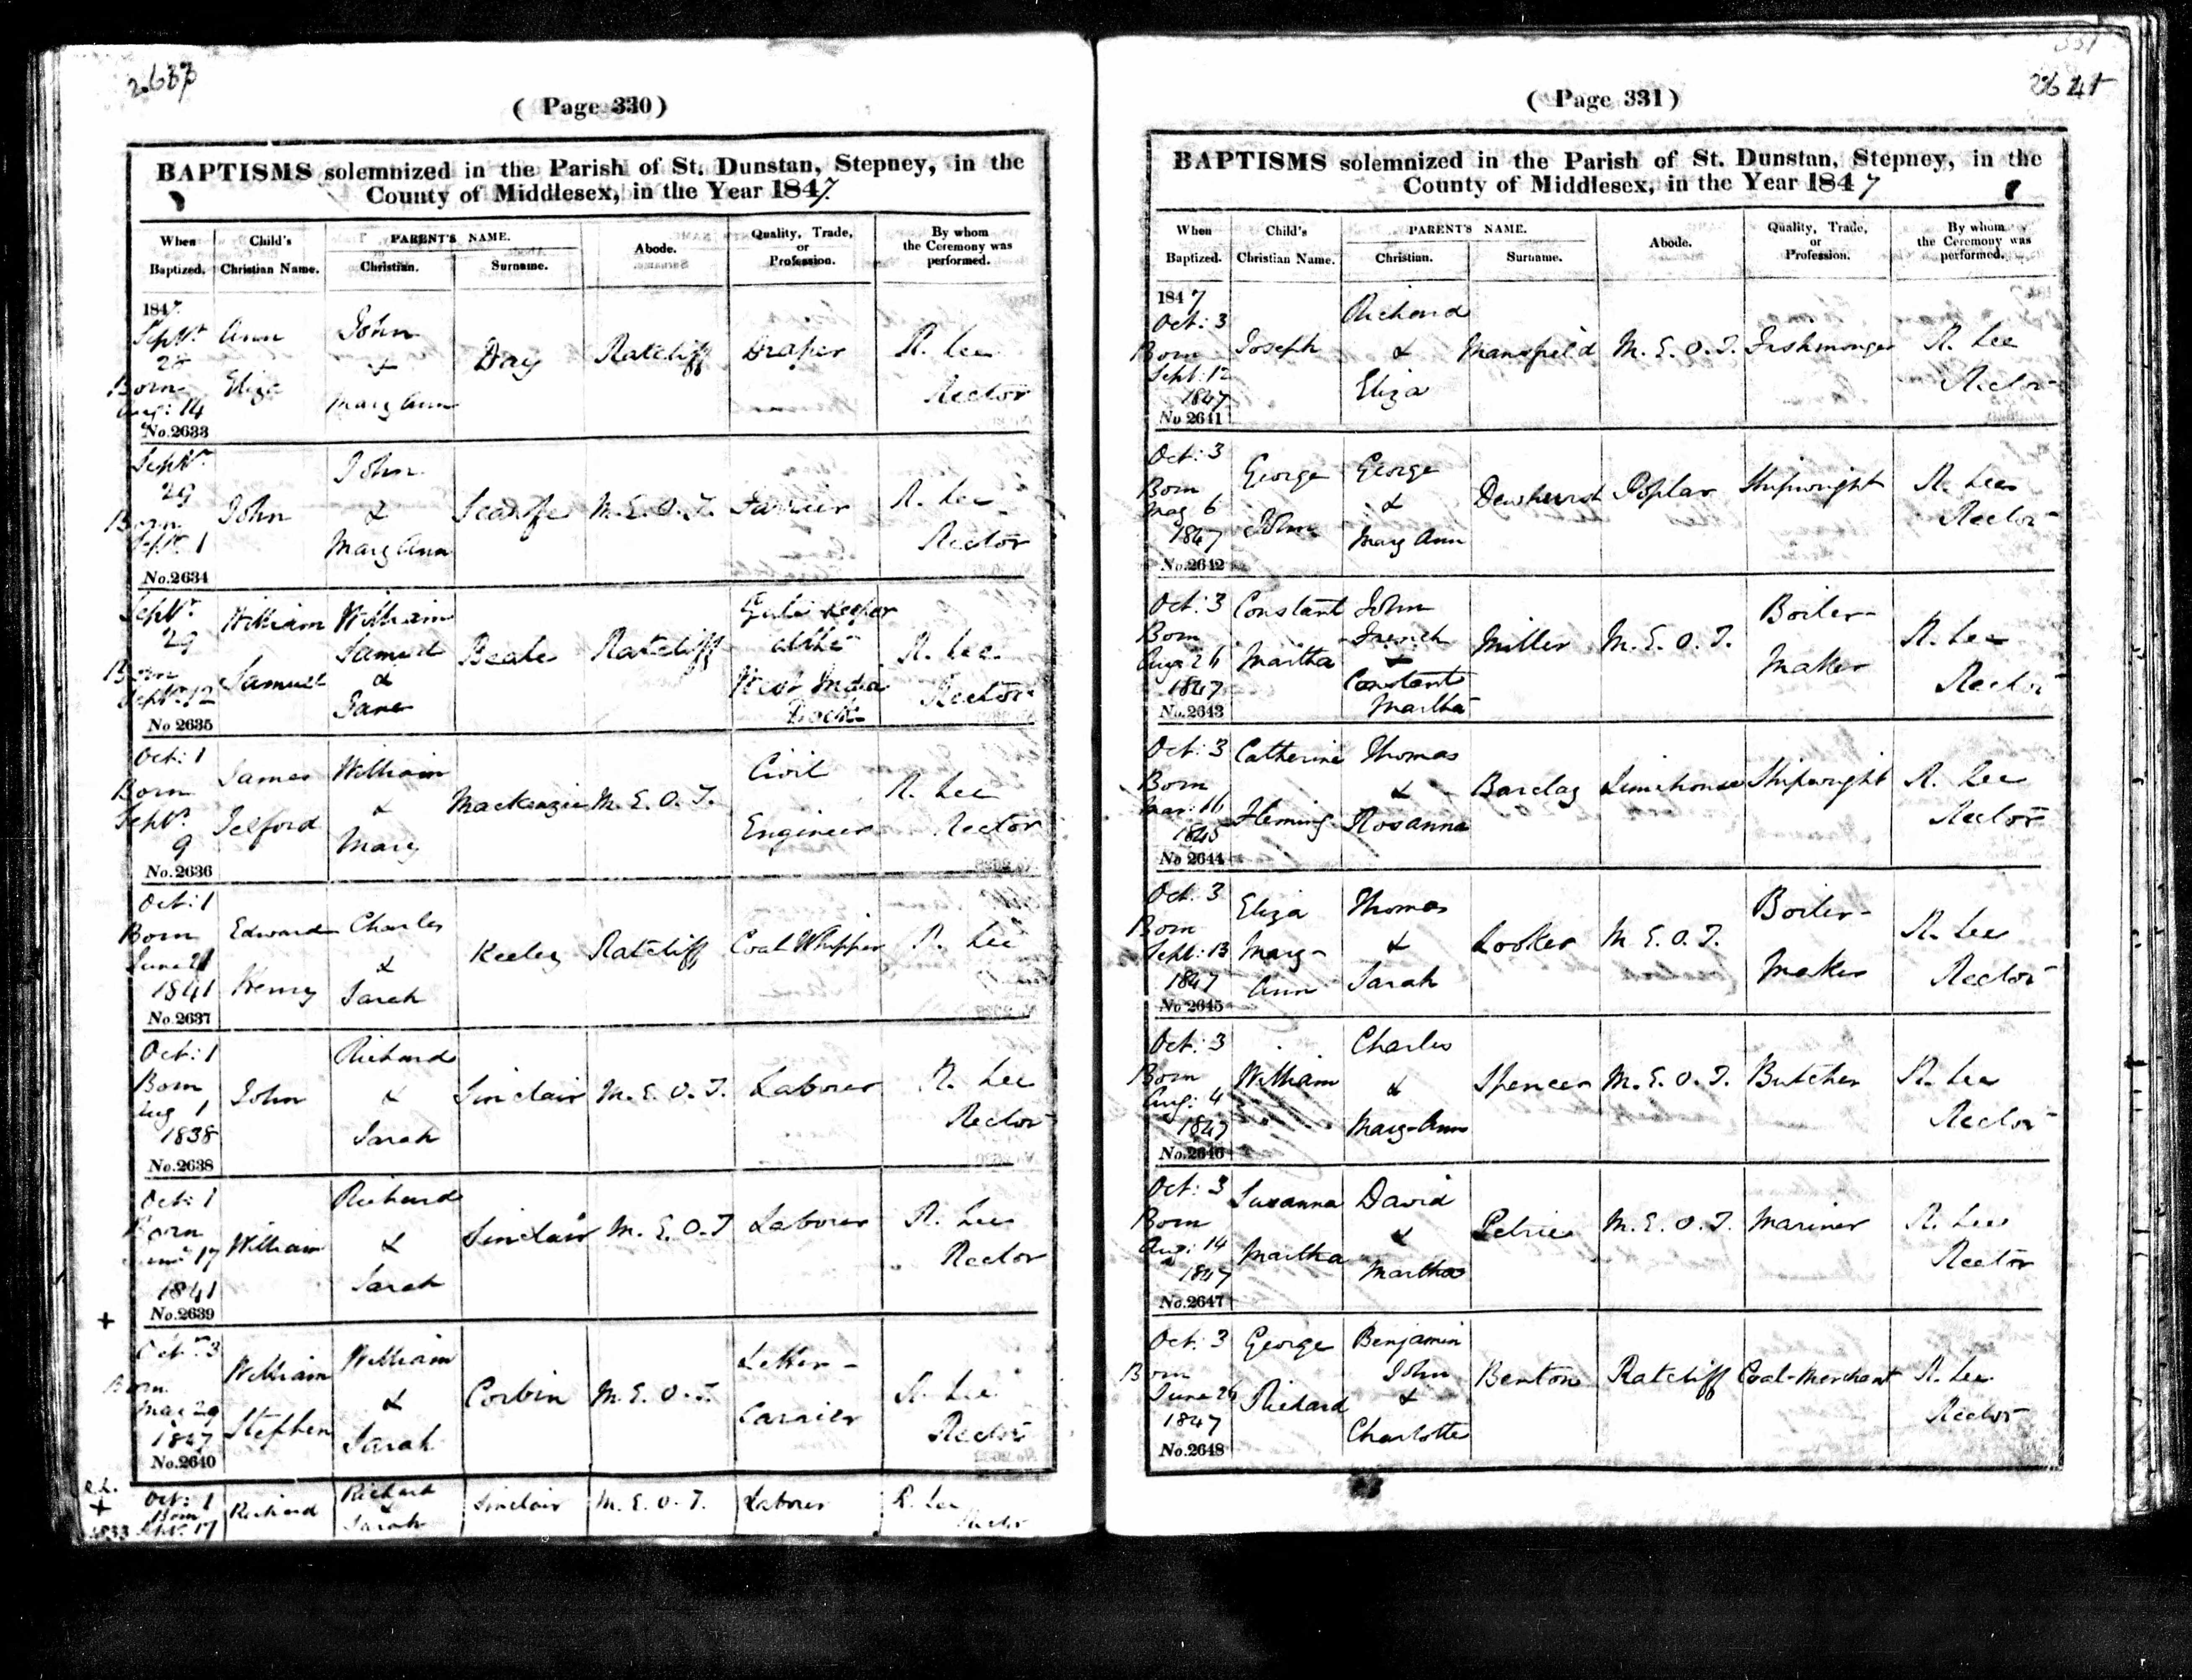 ( Page 330 )
BAPTISMS solemnized in the Parish of St. Dunstan, Stepney, in the
County of Middlesex, in the Year 1847.
When Baptized. Child's Christian Name. PARENT'S NAME. Christian. Surname. Abode. Quality, Trade, or Profession. By whom the Ceremony was performed.
1847.
Septr 28 Born Aug: 14 Ann Eliza John & Mary Ann Day Ratcliff Draper R. Lee Rector
No. 2633
Septr 29 Born Septr 1 John John & Mary Ann M. E. O. T. R. Lee Rector
No. 2634
Septr 29 Born Septr 12 William Samuel William Samuel & Jane Beale Ratcliff Gate Keeper at the West India Dock R. Lee Rector
No 2635
Oct: 1 Born Septr 9 James Telford William & Mary Mackenzie M. E. O. T. Civil Engineer R. Lee Rector
No. 2636
Oct: 1 Born June 21 1841 Edward Henry Charles & Sarah Keeley Ratcliff Coal Whipper R. Lee Rector
No. 2637
Oct: 1 Born Aug 1 1838 John Richard & Sarah Sinclair M. E. O. T. Laborer R. Lee Rector
No. 2638
Oct: 1 Born 17 1841 William Richard & Sarah Sinclair M. E. O. T Laborer R. Lee Rector
No. 2639
+
Oct: 3 Born May 29 1847 William Stephen William & Sarah Corbin M. E. O. T. Letter-Carrier R. Lee Rector
No. 2640
R. L. + Oct: 1 Born 1833 Septr 17 Richard Richard & Sarah Sinclair M. E. O. T. Laborer R. Lee Rector
( Page 331 )
BAPTISMS solemnized in the Parish of St. Dunstan, Stepney, in the
County of Middlesex, in the Year 1847
When Baptized. Child's Christian Name. PARENT'S NAME. Christian. Surname. Abode. Quality, Trade, or Profession. By whom the Ceremony was performed.
1847
Oct: 3 Born Sept: 12 1847 Joseph Richard & Eliza Mansfield M. E. O. T. Fishmonger R. Lee Rector
No 2641
Oct: 3 Born May 6 1847 George John George & Mary Ann Dewhurst Poplar Shipwright R. Lee Rector
No. 2642
Oct: 3 Born Aug: 26 1847 Constant Martha John French & Constant Martha Miller M. E. O. T. Boiler-Maker R. Lee Rector
No. 2643
Oct: 3 Born Mar: 16 1845 Catherine Fleming Thomas & Rosanna Barclay Limehouse Shipwright R. Lee Rector
No 2644
Oct: 3 Born Sept: 13 1847 Eliza Mary-Ann Thomas & Sarah Looker M. E. O. T. Boiler-Maker R. Lee Rector
No 2645
Oct: 3 Born Aug: 4 1847 William Charles & Mary-Ann Spencer M. E. O. T. Butcher R. Lee Rector
No. 2646
Oct: 3 Born Aug: 14 1847 Susanna Martha David & Martha Petrie M. E. O. T. Mariner R. Lee Rector
No. 2647
Oct: 3 Born June 26 1847 George Richard Benjamin John & Charlotte Benton Ratcliff Coal-Merchant R. Lee Rector
No. 2648